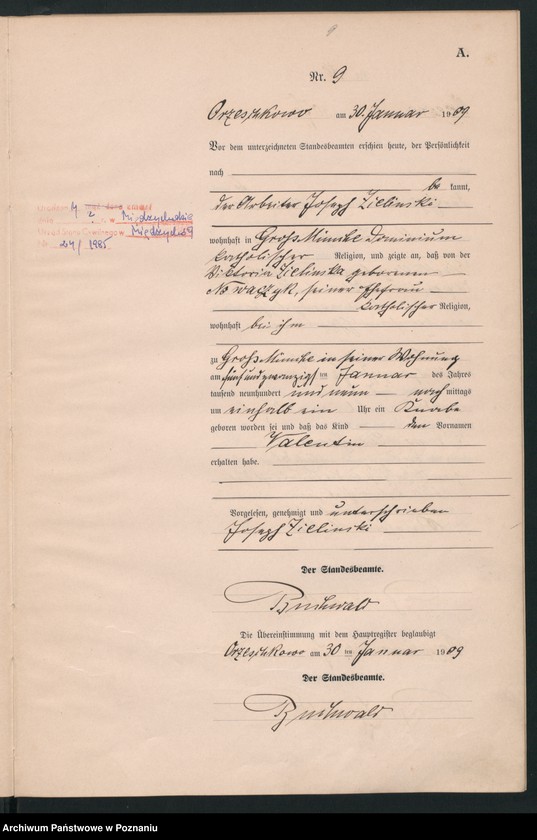 A.
Nr. 9
Orzeschkowo am 30. Januar 1909
Vor dem unterzeichneten Standesbeamten erschien heute, der Persönlichkeit
nach
be kannt,
der Arbeiter Joseph Zielinski
wohnhaft in Groß Münche Dominium
katholischer Religion, und zeigte an, daß von der
Viktoria Zielinska geborenen
Nowaczyk, seiner Ehefrau
katholischer Religion,
wohnhaft bei ihm
zu Groß Münche in seiner Wohnung
am fünf und zwanzigsten Januar des Jahres
tausend neunhundert und neun nach mittags
um einhalb ein Uhr ein Knabe
geboren worden sei und daß das Kind den Vornamen
Valentin
erhalten habe.
Vorgelesen, genehmigt und unterschrieben
Joseph Zielinski
Der Standesbeamte.
Buchwald
Die Übereinstimmung mit dem Hauptregister beglaubigt
Orzeschkowo am 30 ten Januar 1909
Der Standesbeamte.
Buchwald
w Międzychodzie
Międzychód
Nr. 27/1985
Archiwum Państwowe w Poznaniu